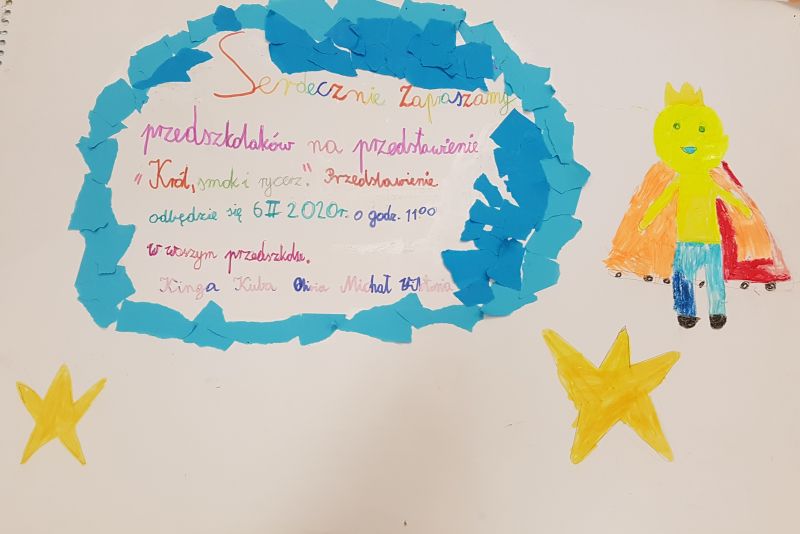 Serdecznie Zapraszamy
przedszkolaków na przedstawienie
"Król, smok i rycerz." Przedstawienie
odbędzie się 6 II 2020r. o godz. 11⁰⁰
w waszym przedszkolu.
Kinga Kuba Oliwia Michał